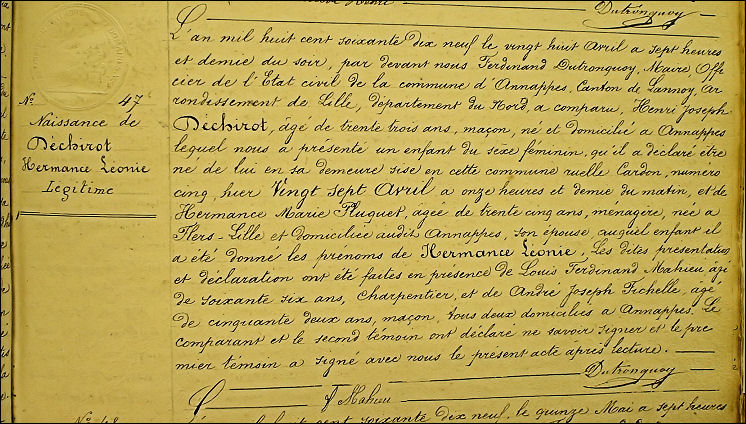 Dutronquoy
L'an mil huit cent soixante dix neuf le vingt huit Avril a sept heures
et demie du soir, par devant nous Ferdinand Dutronquoy, Maire, Offi
cier de l'Etat civil de la commune d'Annappes, Canton de Lannoy, ar
rondissement de Lille, département du Nord, a comparu, Henri Joseph
Déchirot, âgé de trente trois ans, maçon, né et domicilié a Annappes
lequel nous a présenté un enfant du sexe féminin, qu'il a déclaré être
né de lui en sa demeure sise en cette commune ruelle Cardon, numéro
cinq, hier Vingt sept Avril a onze heures et demie du matin, et de
Hermance Marie Fluquet, agée de trente cinq ans, ménagère, née a
Flers-Lille et domiciliée audit Annappes, son épouse auquel enfant il
a été donné les prénoms de Hermance Léonie. Les dites présentation
et déclaration ont été faites en présence de Louis Ferdinand Mahieu agé
de soixante six ans, Charpentier, et de André Joseph Fichelle, agé
de cinquante deux ans, maçon, tous deux domiciliés a Annappes. Le
comparant et le second témoin ont déclaré ne savoir signer et le pre
mier témoin a signé avec nous le présent acte après lecture.
Dutronquoy
f Mahieu
soixante dix neuf, le quinze Mai a sept heures
No 47
Naissance de
Déchirot
Hermance Léonie
Légitime
No 48